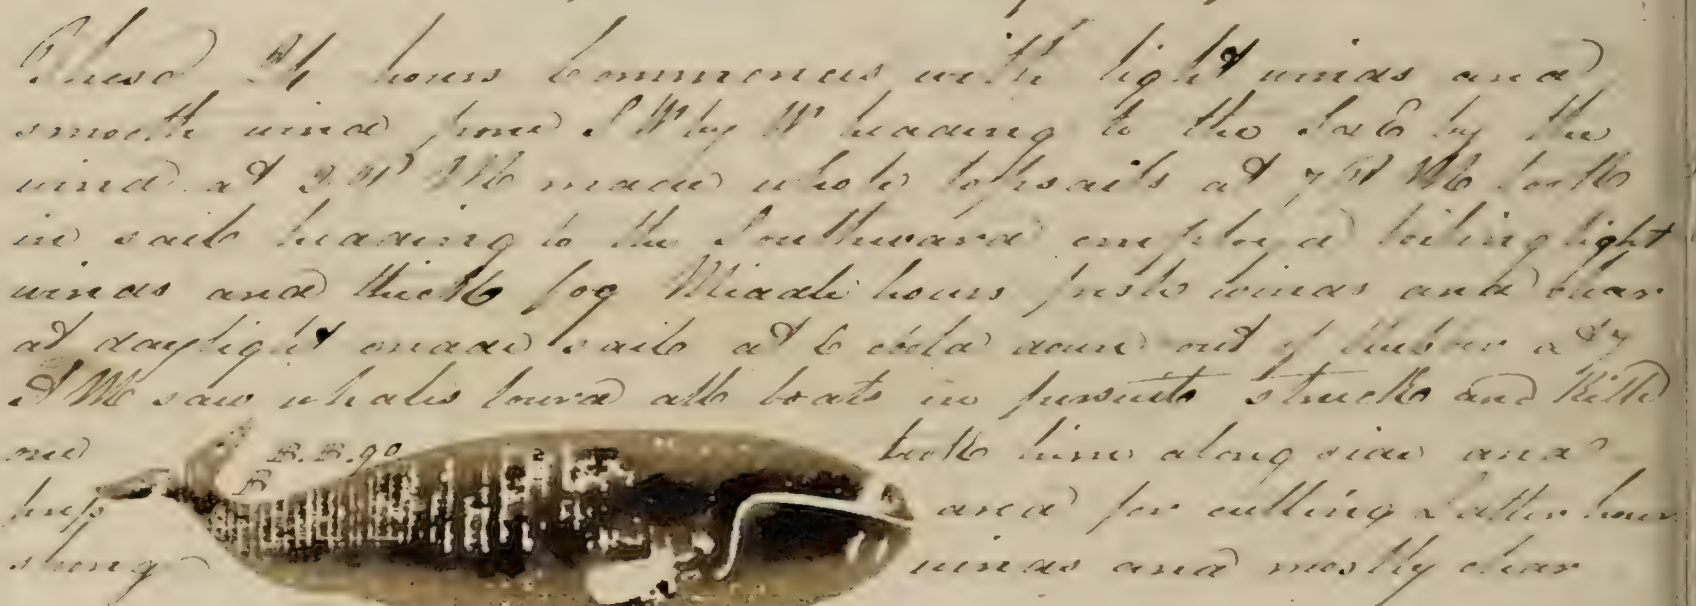 These 24 hours Commences with light winds and
smooth wind from S W by W heading to the S & E by the
wind at 2 P M made whole topsails at 7 P M took
in sail heading to the Southward employd boiling light
winds and thick fog Middle hours fresh winds and clear
at daylight made sail at 6 coold down out of at 7
A M saw whales lowrd all boats in pursuite struck and killd
one B.B.90 took him along side and
F
area for cutting Latter hour
strong winds and mostly clear